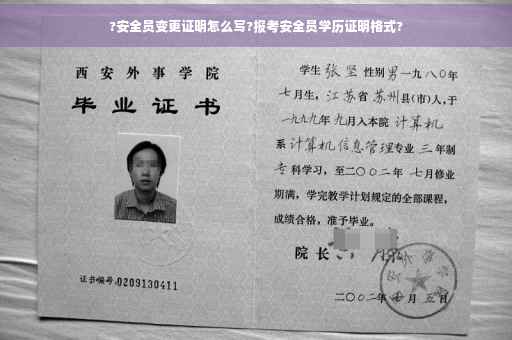 ?安全员变更证明怎么写?报考安全员学历证明格式?
西安外事学院
毕业证书
证书编号:0209130411
学生 张坚 性别 男 一九八〇年
七月生, 江苏省 苏州县(市)人,于
一九九九年 九月入本院 计算机
系 计算机信息管理专业 三 年制
专 科学习, 至二〇〇二年 七月修业
期满, 学完教学计划规定的全部课程,
成绩合格, 准予毕业。
院长
二〇〇二年 月 五日